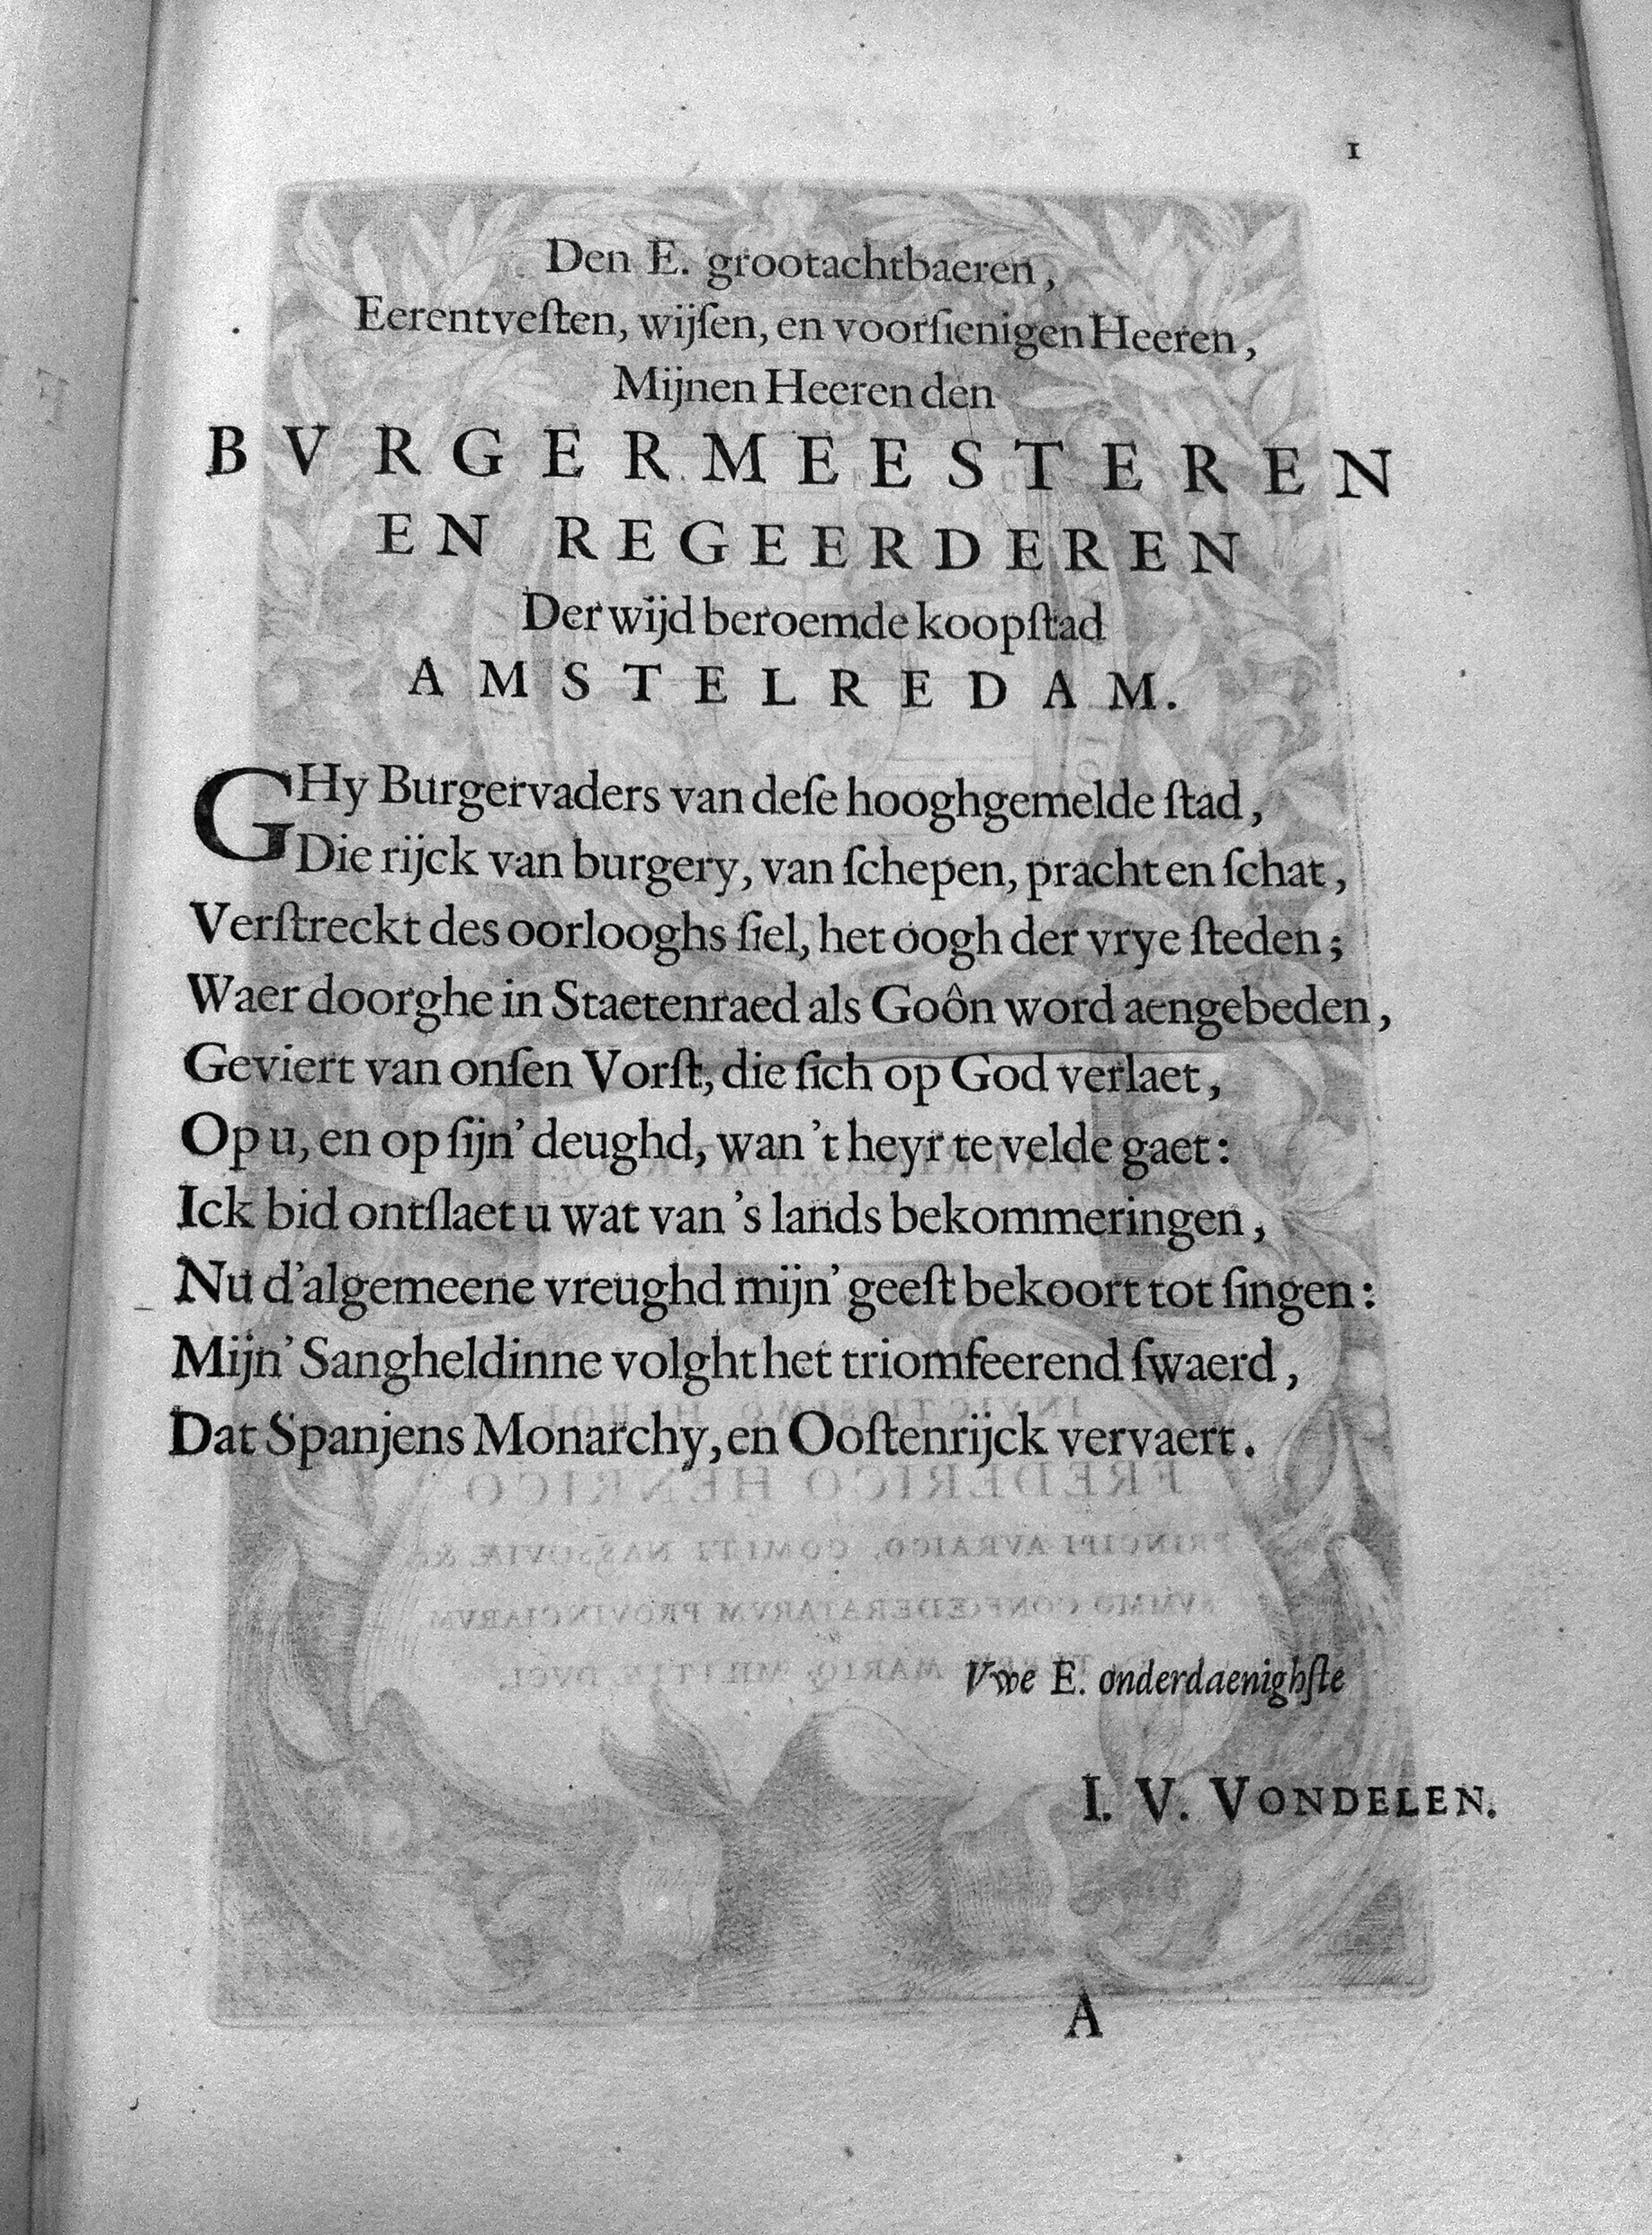 1
Den E. grootachtbaeren,
Eerentveſten, wijſen, en voorſienigen Heeren,
Mijnen Heeren den
BVRGERMEESTEREN
EN REGEERDEREN
Der wijd beroemde koopſtad
AMSTELREDAM.
GHy Burgervaders van deſe hooghgemelde ſtad,
Die rijck van burgery, van ſchepen, pracht en ſchat,
Verſtreckt des oorlooghs ſiel, het oogh der vrye ſteden;
Waer doorghe in Staetenraed als Goôn word aengebeden,
Geviert van onſen Vorſt, die ſich op God verlaet,
Op u, en op ſijn' deughd, wan 't heyr te velde gaet:
Ick bid ontſlaet u wat van 's lands bekommeringen,
Nu d'algemeene vreughd mijn' geeſt bekoort tot ſingen:
Mijn' Sangheldinne volght het triomfeerend ſwaerd,
Dat Spanjens Monarchy, en Ooſtenrijck vervaert.
FREDERICO HENRICO
PRINCIPI AVRAICO, COMITI NASSOVIÆ &
SVMMO CONFŒDERATARVM PROVINCIARVM
MARIQ. MILITIÆ DVCI.
Vwe E. onderdaenighſte
I. V. VONDELEN.
A